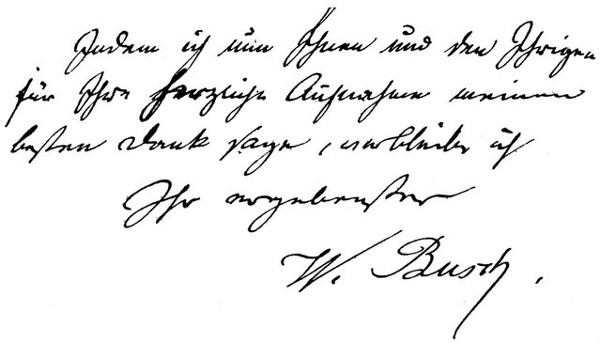 Indem ich nun Ihnen und den Ihrigen
für Ihre herzliche Aufnahme meinen
besten Dank sage, verbleibe ich
Ihr ergebenster
W. Busch.